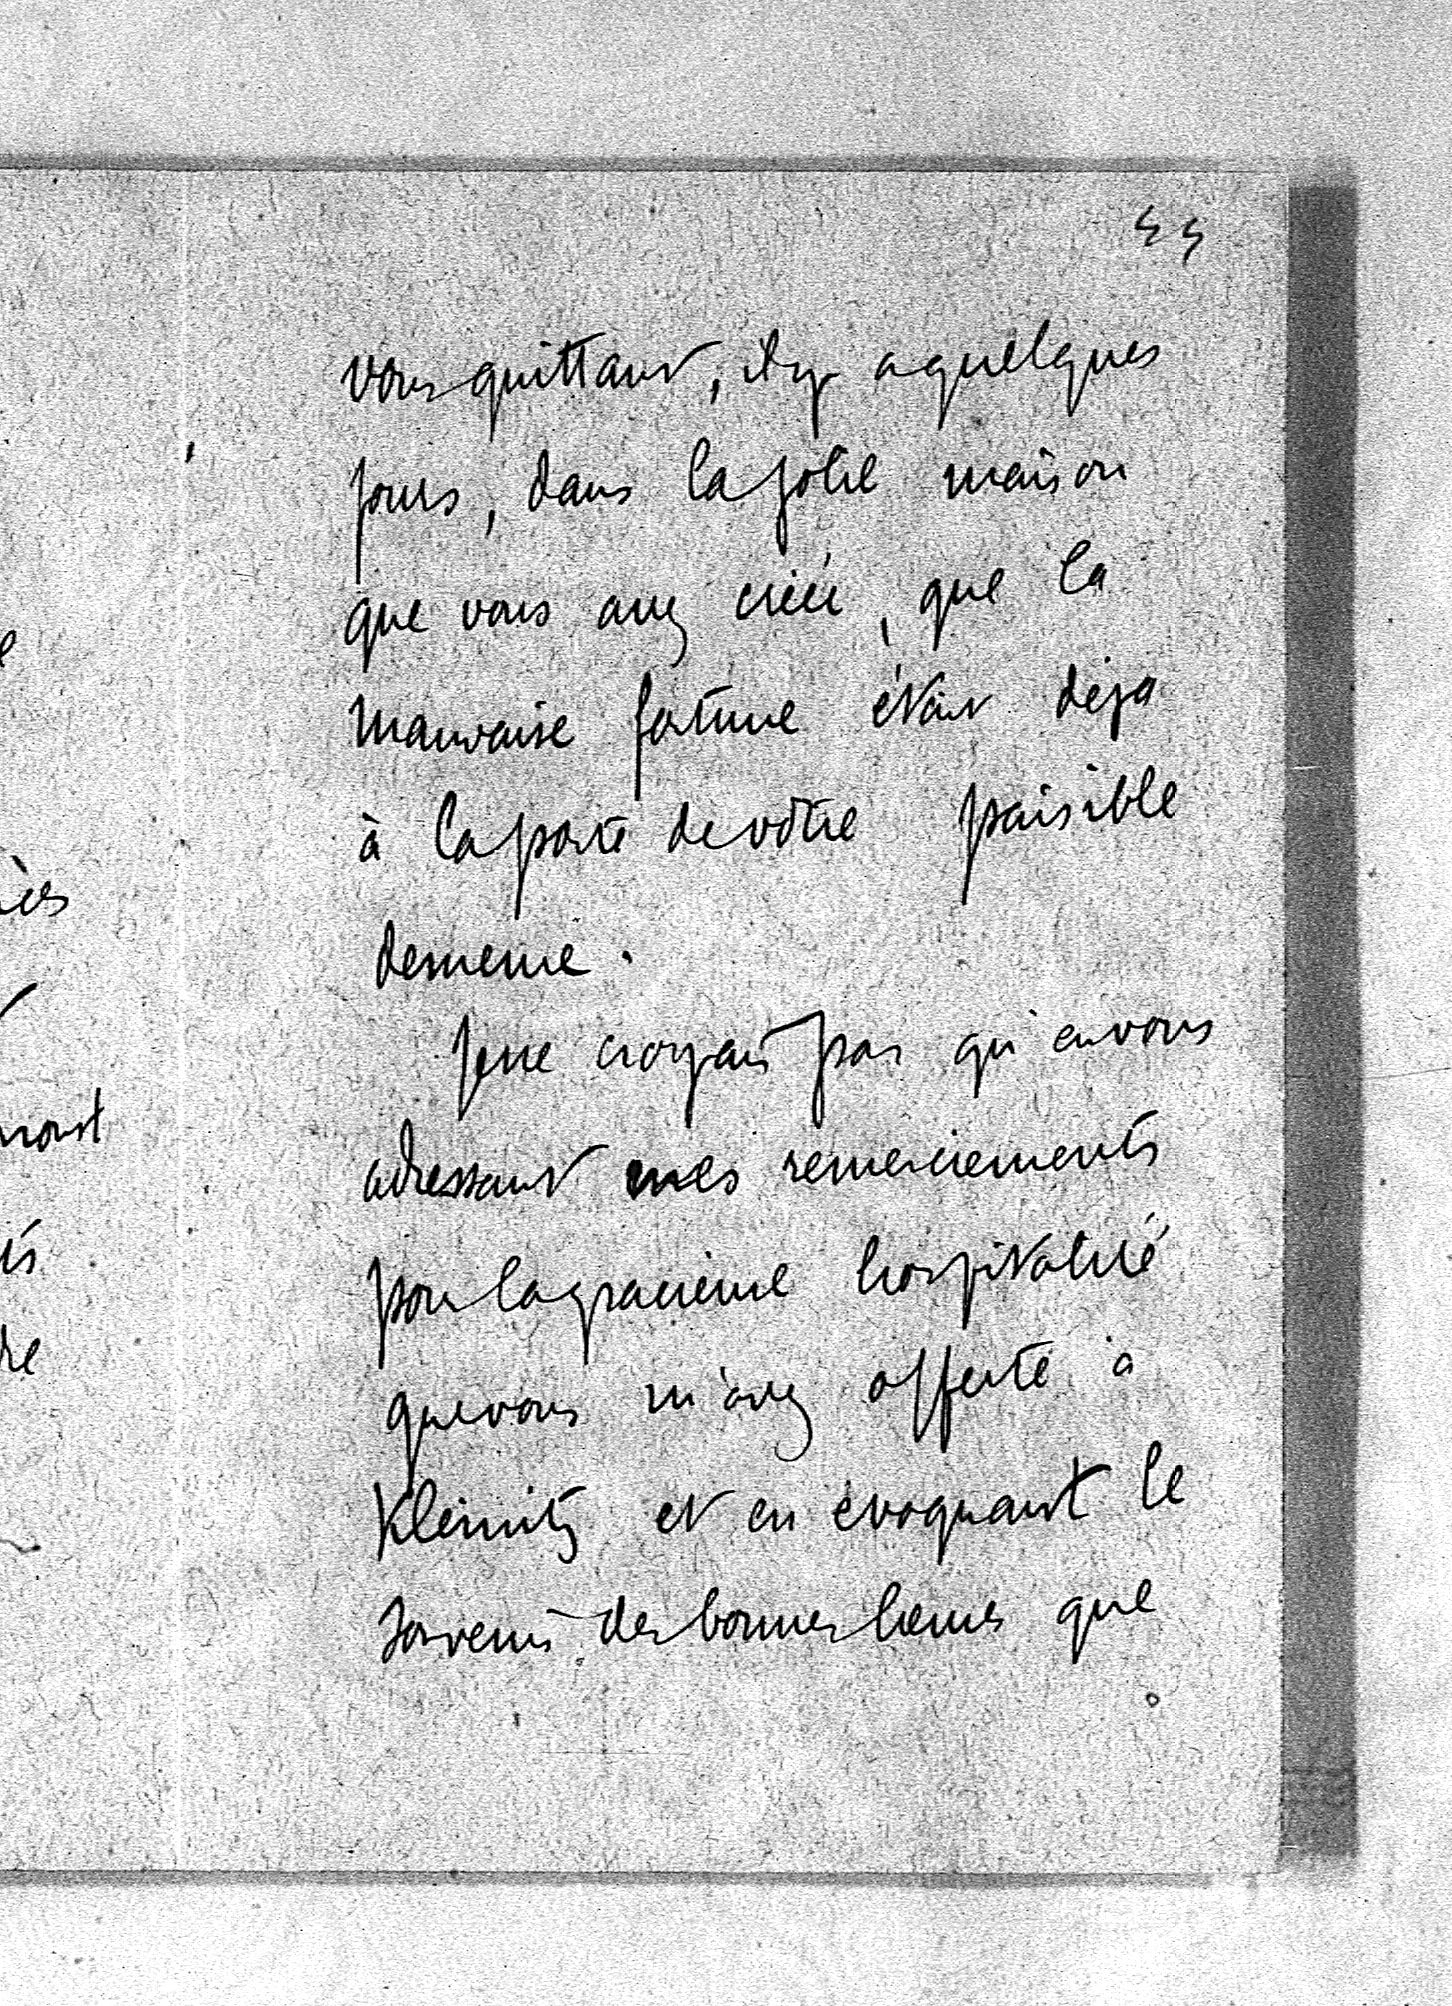 55
vous quittant, il y a quelques
jours, dans la jolie maison
que vous avez créée, que la
mauvaise fortune était déja
à la porte de votre paisible
demeure.
Je ne croyais pas qu'en vous
adressant mes remerciements
pour la gracieuse hospitalité
que vous m'avez offerte à
et en évoquant le
souvenir des bonnes heures que